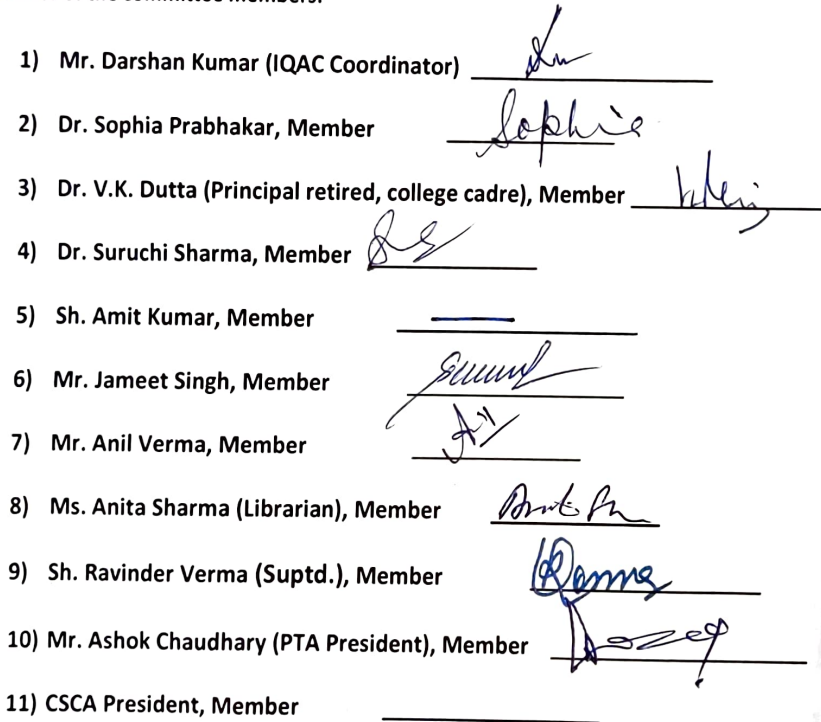 committee members:
1) Mr. Darshan Kumar (IQAC Coordinator)
2) Dr. Sophia Prabhakar, Member Sophia
3) Dr. V.K. Dutta (Principal retired, college cadre), Member
4) Dr. Suruchi Sharma, Member
5) Sh. Amit Kumar, Member
6) Mr. Jameet Singh, Member
7) Mr. Anil Verma, Member
8) Ms. Anita Sharma (Librarian), Member
9) Sh. Ravinder Verma (Suptd.), Member
10) Mr. Ashok Chaudhary (PTA President), Member
11) CSCA President, Member